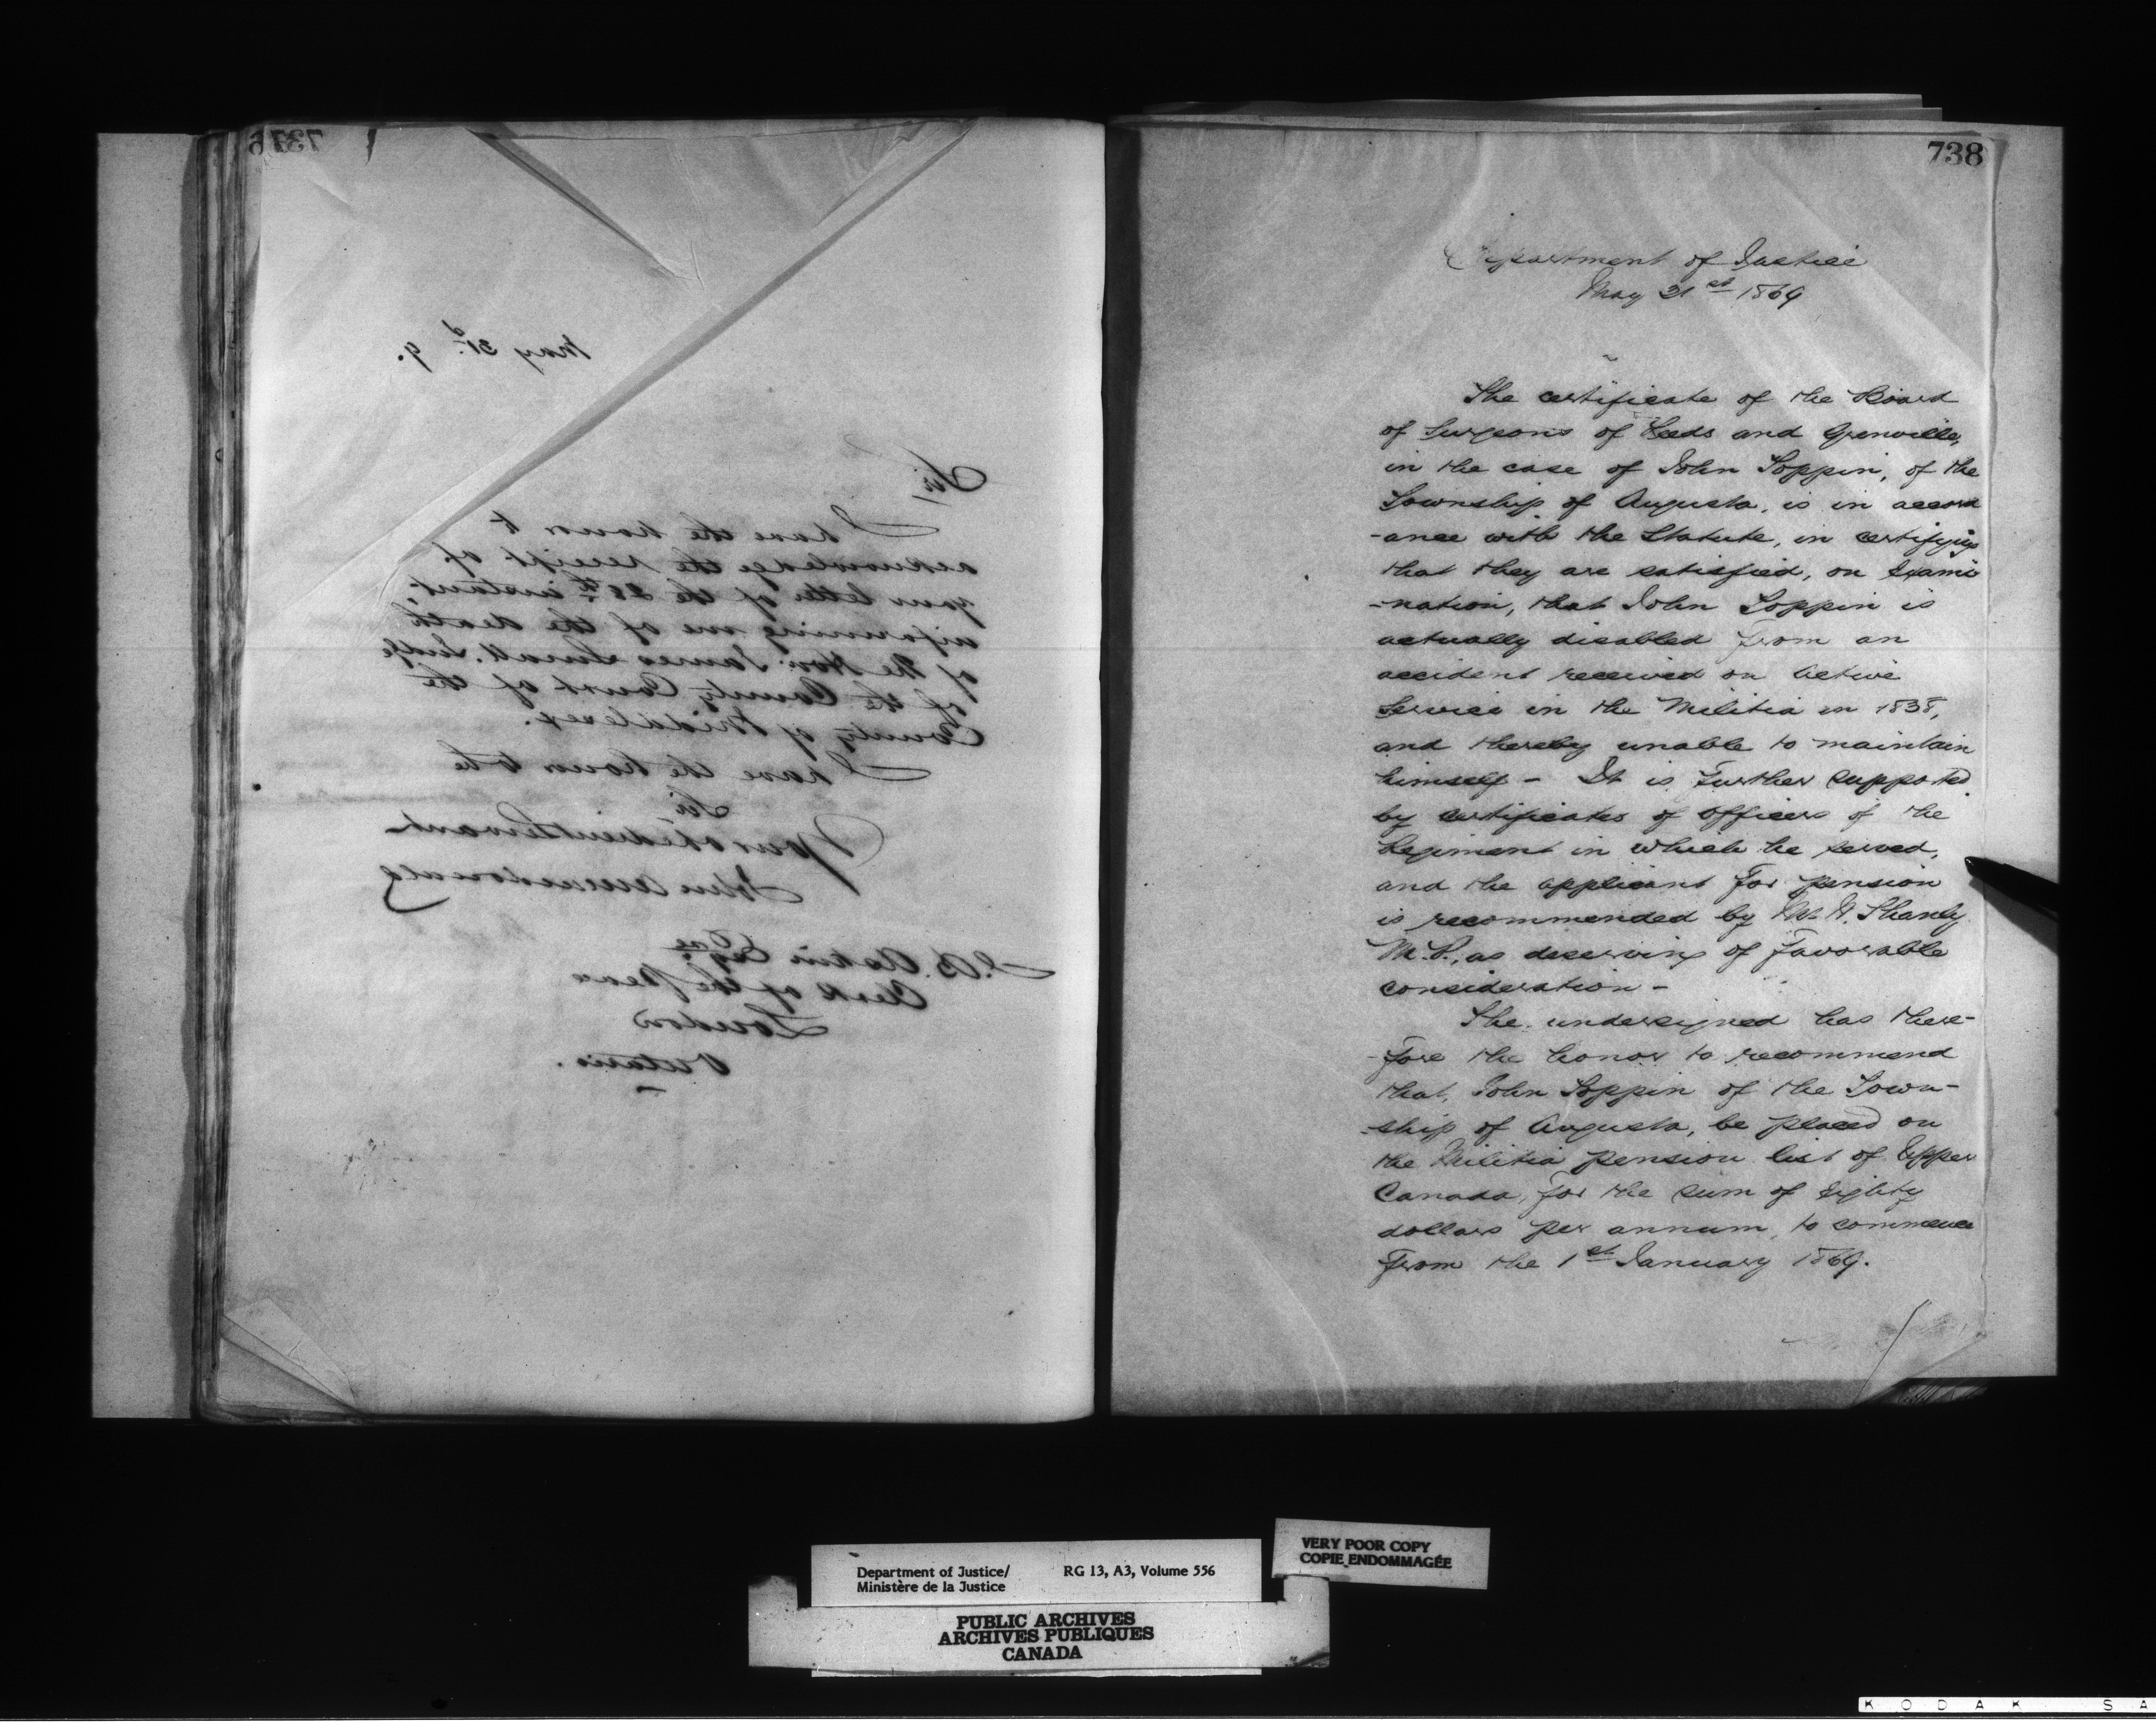 May 31st 9.
Sir,
I have the honor to
acknowledge the receipt of
your letter of the 28th instant,
informing me of the death
of the Hon: James Small, Judge
of the County Court of the
County of Middlesex.
I have the honor to be
Sir
Your obedient Servant
John A Macdonald
J. B. Askin Esqre
Clerk of the Peace
London
Ontario.
738
Department of Justice
May 21st 1869
The certificate of the Board
of Surgeons of Leeds and Grenville,
in the case of John Toppin, of the
Township of Augusta, is in accord
-ance with the Statute, in certifying
that they are satisfied, on Exami
-nation, that John Toppin is
actually disabled from an
accident received on Active
Service in the Militia in 1838,
and thereby unable to maintain
himself - It is further supported
by certificates of Officers of the
Regiment in which he served,
and the applicant for pension
is recommended by Mr. W. Shanly
M.P., as deserving of favorable
consideration -
The undersigned has there-
-fore the honor to recommend
that, John Toppin of the Town-
-ship of Augusta, be placed on
the Militia pension list of Upper
Canada, for the sum of Eighty
dollars per annum, to commence
from the 1st January 1869.
Department of Justice/ RG 13, A3, Volume 556
Ministère de la Justice
VERY POOR COPY
COPIE ENDOMMAGÉE
PUBLIC ARCHIVES
ARCHIVES PUBLIQUES
CANADA
KODAK SA